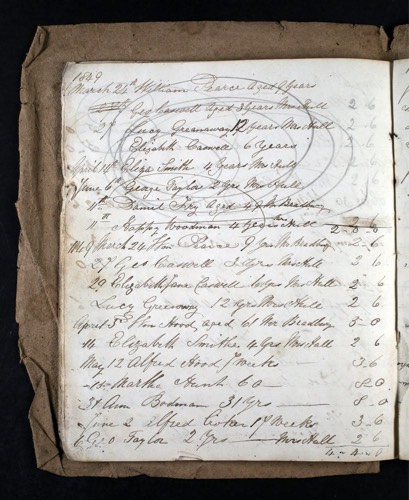 1849
March 24th William Pearce Aged 9 years
Geo Carswell Aged 3 years Mrs Hull 2 - 6
27 Lucy Greenaway 12 years Mrs Hull 2 - 6
Elizabeth Caswell 6 years 2 6
April 14th Eliza Smith 4 Years Mrs Hull 2 6
June 6th George Taylor 2 yrs Mrs Hull 2 6
11th Daniel Aged 4
11th Happy Woodman 4 years Hull 2 - 3 - 6
1849 March 24 Wm Pearce 9 yrs Mr Beadbury 2 - 6
27 Geo Carswell 3 Yrs Mrs Hull 2 6
29 Elizabeth Jane Caswell 6 yrs Mrs Hull 2 6
Lucy Greenway 12 yrs Mrs Hull 2 6
April 3rd Wm Hood, aged 61 Mr Beadbury 5 - 0
14 Elizabeth Smith 4 Yrs Mrs Hull 2 6
May 12 Alfred Hood 7 Weeks 3 6
Martha Hunt 60 8 0
31 Ann Bodman 31 Yrs 8 - 0
June 2 Alfred 17 Weeks 3 - 6
6 Geo Taylor 2 Yrs Mrs Hull 2 6
4 - 4 - 0